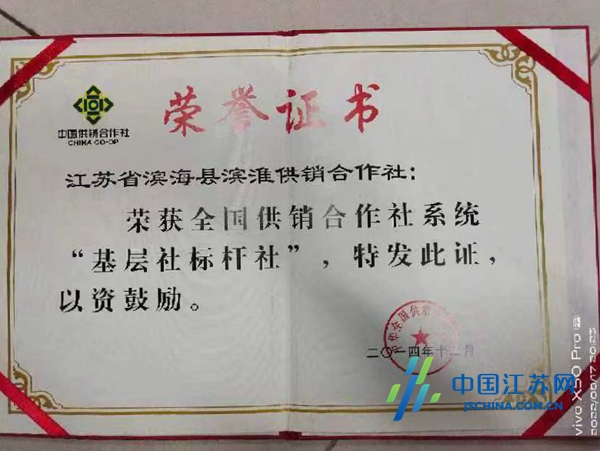 荣誉证书
中国供销合作社
CHINA CO-OP
江苏省滨海县滨淮供销合作社：
荣获全国供销合作社系统
“基层社标杆社”，特发此证，
以资鼓励。
二〇一四年十二月
中国江苏网
JSCHINA.COM.CN
vivo X50 Pro